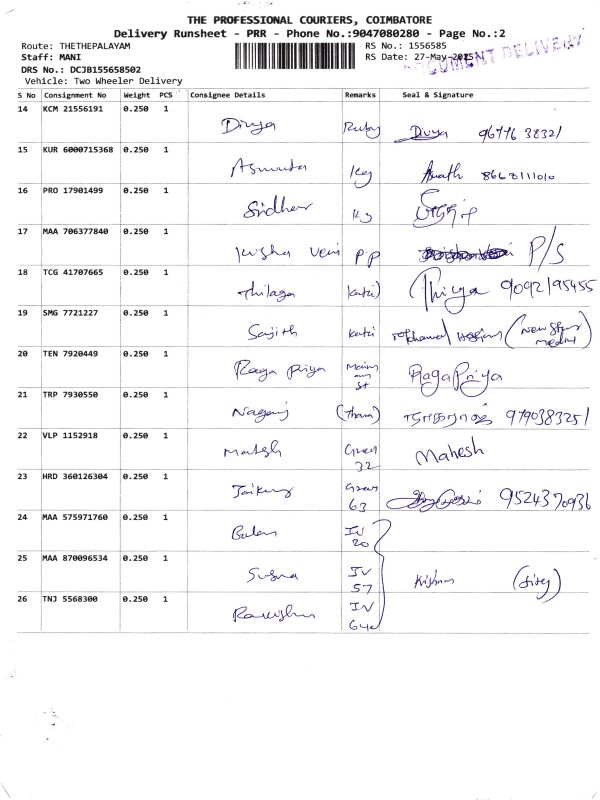 THE PROFESSIONAL COURIERS, COIMBATORE
Delivery Runsheet - PRR - Phone No.:9047080280 - Page No.:2
Route: THETHEPALAYAM
Staff: MANI
DRS No.: DCJB155658502
Vehicle: Two Wheeler Delivery
RS No.: 1556585
RS Date: 27-May-2025
DOCUMENT DELIVERY
S No Consignment No Weight PCS Consignee Details Remarks Seal & Signature
14 KCM 21556191 0.250 1 Divya Ruby Divya 96776 38321
15 KUR 6000715368 0.250 1 Kg 8668111010
16 PRO 17901499 0.250 1 Sridhar Kg
17 MAA 706377840 0.250 1 Veni PP P/S
18 TCG 41707665 0.250 1 Thilaga 9092195455
19 SMG 7721227 0.250 1 Sajith
20 TEN 7920449 0.250 1 Raga Priya Main St RagaPriya
21 TRP 7930550 0.250 1 Nagaraj நாகராஜ் 979038325/
22 VLP 1152918 0.250 1 Mahesh Green 32 Mahesh
23 HRD 360126304 0.250 1 Green 63 9524370936
24 MAA 575971760 0.250 1 Balan IV 20
25 MAA 870096534 0.250 1 IV 57 Krishna
26 TNJ 5568300 0.250 1 IV